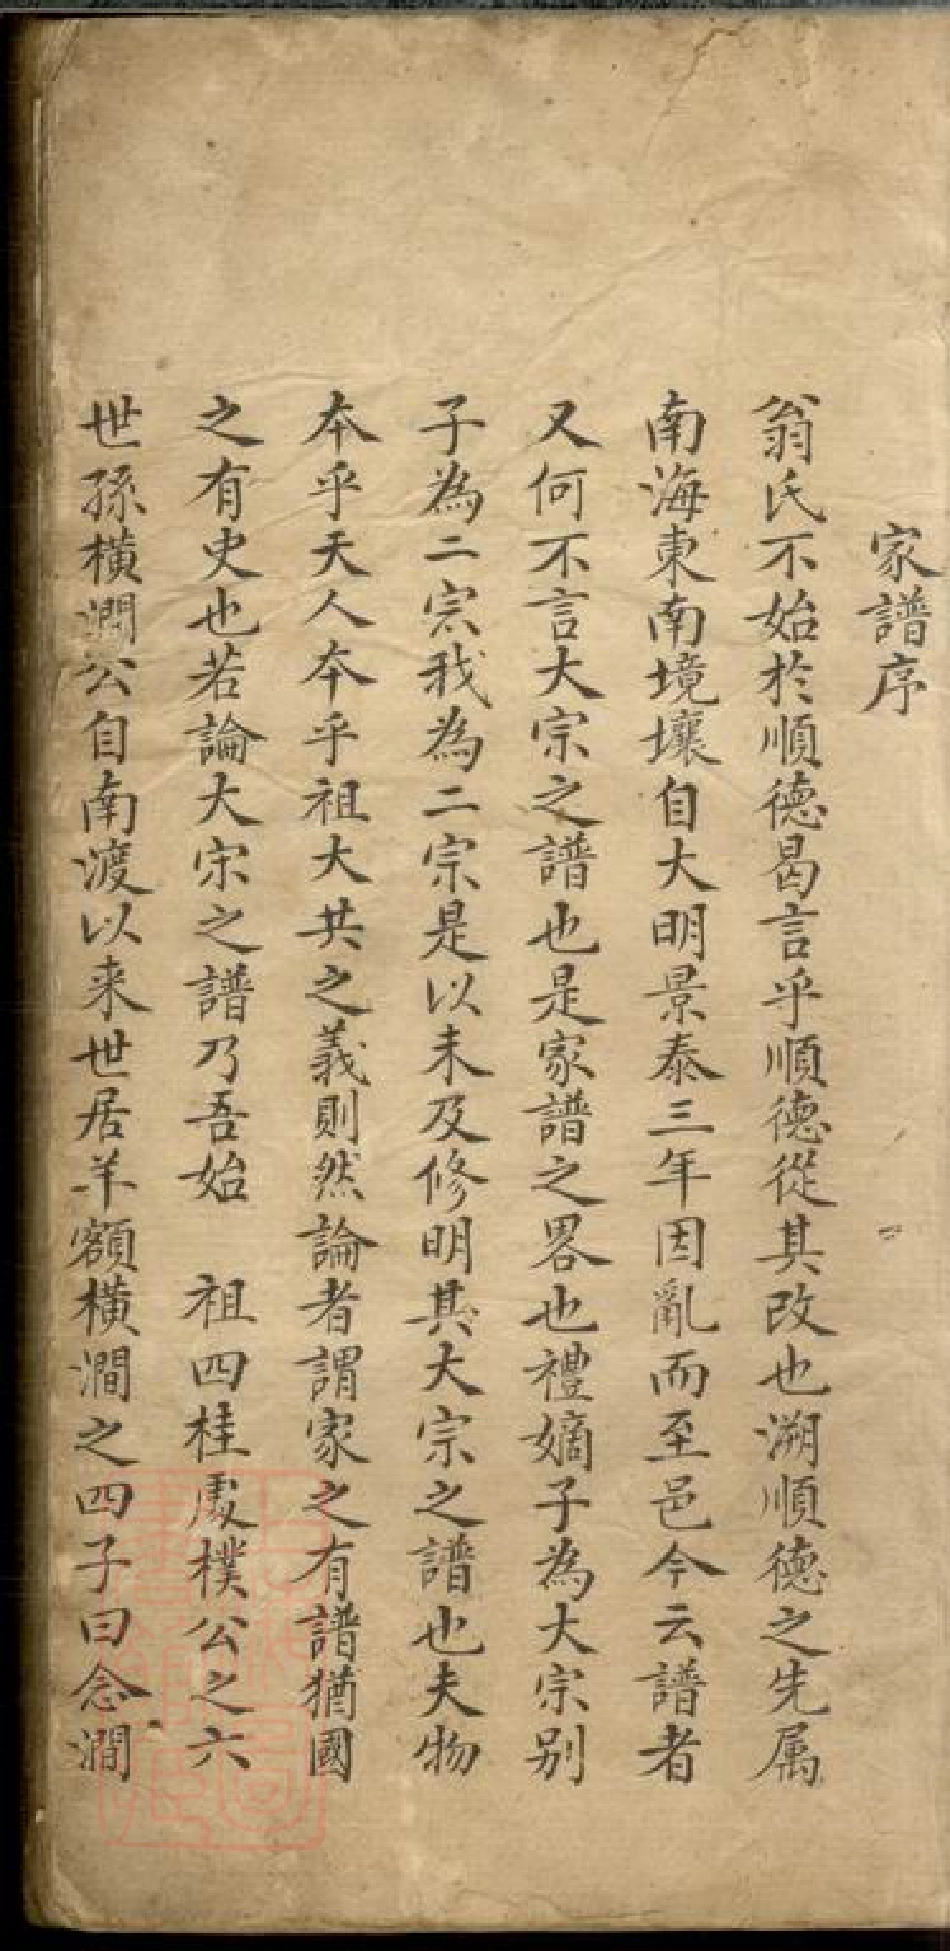 家譜序
翁氏不始於順德曷言乎順德從其改也溯順德之先属
南海東南境壤自大明景泰三年因亂而至邑今云譜者
又何不言大宗之譜也是家譜之畧也禮嫡子為大宗别
子為二宗我為二宗是以未及修明其大宗之譜也夫物
本乎天人本乎祖大共之義則然論者謂家之有譜猶國
之有史也若論大宗之譜乃吾始 祖四桂處樸公之六
世孫橫澗公自南渡以来世居羊額橫澗之四子曰念澗